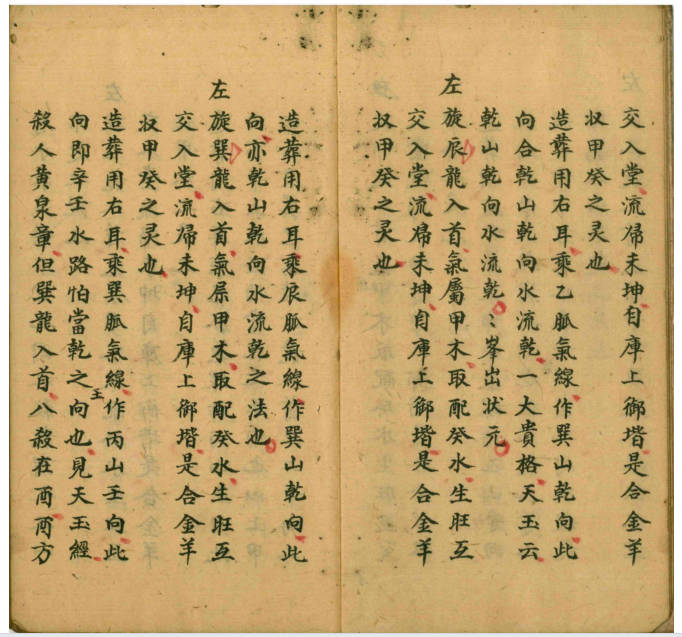 交入堂流𱖗未坤自庫上御堦是合金羊
収甲癸之灵也
造葬用右耳乘乙脈氣線作巽山乾向此
向合乾山乾向水流乾一大貴格天玉云
乾山乾向水流乾〻峯出状元
左旋辰龍入首氣屬甲木取配癸水生旺互
交入堂流𱖗未坤自庫上御堦是合金羊
収甲癸之灵也
造葬用右耳乘辰脈氣線作巽山乾向此
向亦乾山乾向水流乾之法也
左旋巽龍入首氣屬甲木取配癸水生旺互
交入堂流𱖗未坤自庫上御堦是合金羊
収甲癸之灵也
造葬用右耳乘巽脈氣線作丙山壬向此
向即辛壬水路怕當乾之主向也見天玉經
殺人黄泉章但巽龍入首八殺在酉酉方